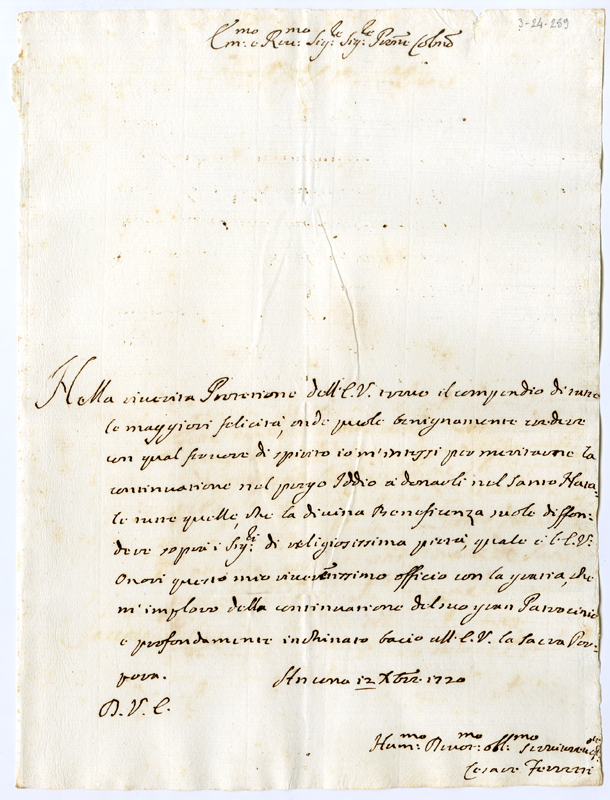 3-24-289
Em.mo e Rev.mo Sig.re Sig.re P̃rone Colmo
Nella riverita Protezione dell'E.V. trovo il compendio di tutte
le maggiori felicità, onde puole benignamente credere
con qual fervore di spirito io m'interessi per meritarne la
continuatione nel prego Iddio à donarli nel Santo Nata-
le tutte quelle che la divina Beneficenza suole diffon-
dere sopra i Sig.ri di religiosissima pietà, quale è l'E.V.
Onori questo mio riverentissimo officio con la grazia, che
m'imploro della continuatione del suo gran Patrocinio
e profondamente inchinato bacio all'E.V. la Sacra Por-
pora.
Ancona 12 Xbre 1720
D. V. E.
Hum.mo Divot.mo Obl.mo Servitore
Cesare Ferretti